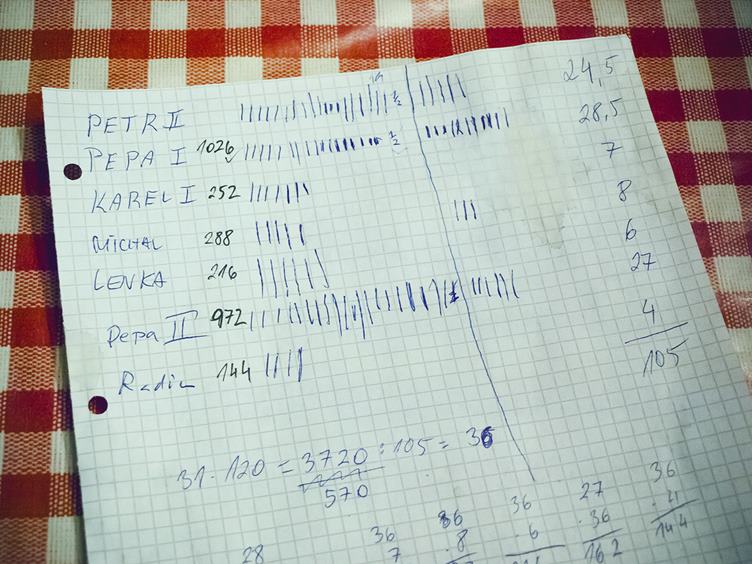 PETR II ½ 24,5
PEPA I 1026 ½ 28,5
KAREL I 252 7
MICHAL 288 8
LENKA 216 6
Pepa II 972 27
Radim 144 4
105
31 · 120 = 3720 : 105 = 36
570
28 36 36 36 27 36
7 · 8 · 6 · 36 · 4
162 144